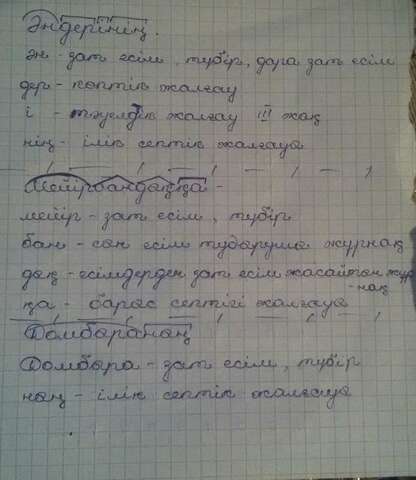 Әндерінің.
ән - зат есім, түбір, дара зат есім
дер - көптік жалғау
і - тәуелдік жалғау III жақ
нің - ілік септік жалғауы
Мейірбандаққа -
мейір - зат есім, түбір
бан - сын есім тудырушы жұрнақ
дақ - есімдерден зат есім жасайтын жұр
-нақ
қа - барыс септігі жалғауы
Домбыраның
Домбыра - зат есім, түбір
ның - ілік септік жалғауы